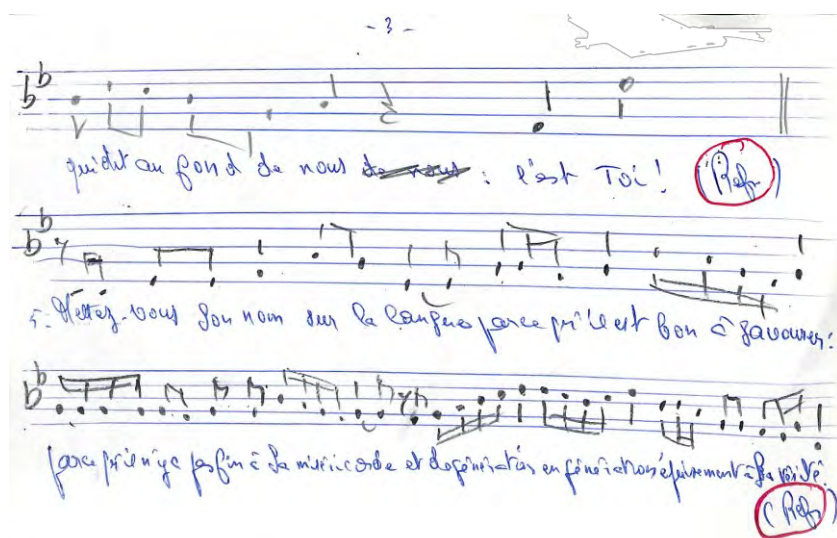 - 3 -
qui dit au fond de nous de nous : c'est Toi ! (Refr)
5. Mettez-vous son nom sur la langue parce qu'il est bon à savourer :
parce qu'il n'y a pas fin à sa miséricorde et de générations en générations à sa vérité.
(Refr)